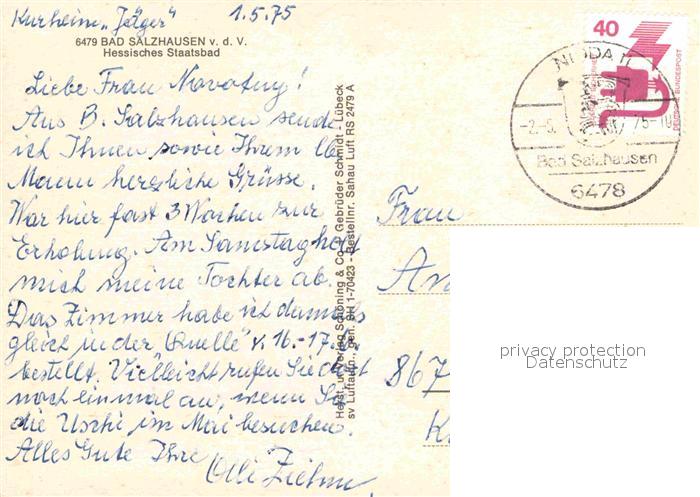 Kurheim „Jäger" 1.5.75
6479 BAD SALZHAUSEN v. d. V.
Hessisches Staatsbad
Liebe Frau Navotny!
Aus B. Salzhausen sende
ich Ihnen sowie Ihrem lb
Mann herzliche Grüsse.
War hier fast 3 Wochen zur
Erholung. Am Samstag holt
mich meine Tochter ab.
Das Zimmer habe ich damals
gleich in der Quelle v. 16.-17.
bestellt. Vielleicht rufen Sie dort
noch einmal an, wenn Sie
die Uschi im Mai besuchen.
Alles Gute Ihre
Olli
Herst. u. Verlag Schöning & Co + Gebrüder Schmidt - Lübeck
sv Luftaufn., gen. SH 1-70423 - Bestellnr. Sahau Luft RS 2479 A
40
DEUTSCHE BUNDESPOST
NIDDA
-2.-5. 75-10
Bad Salzhausen
6478
Frau
An
867
K
privacy protection
Datenschutz